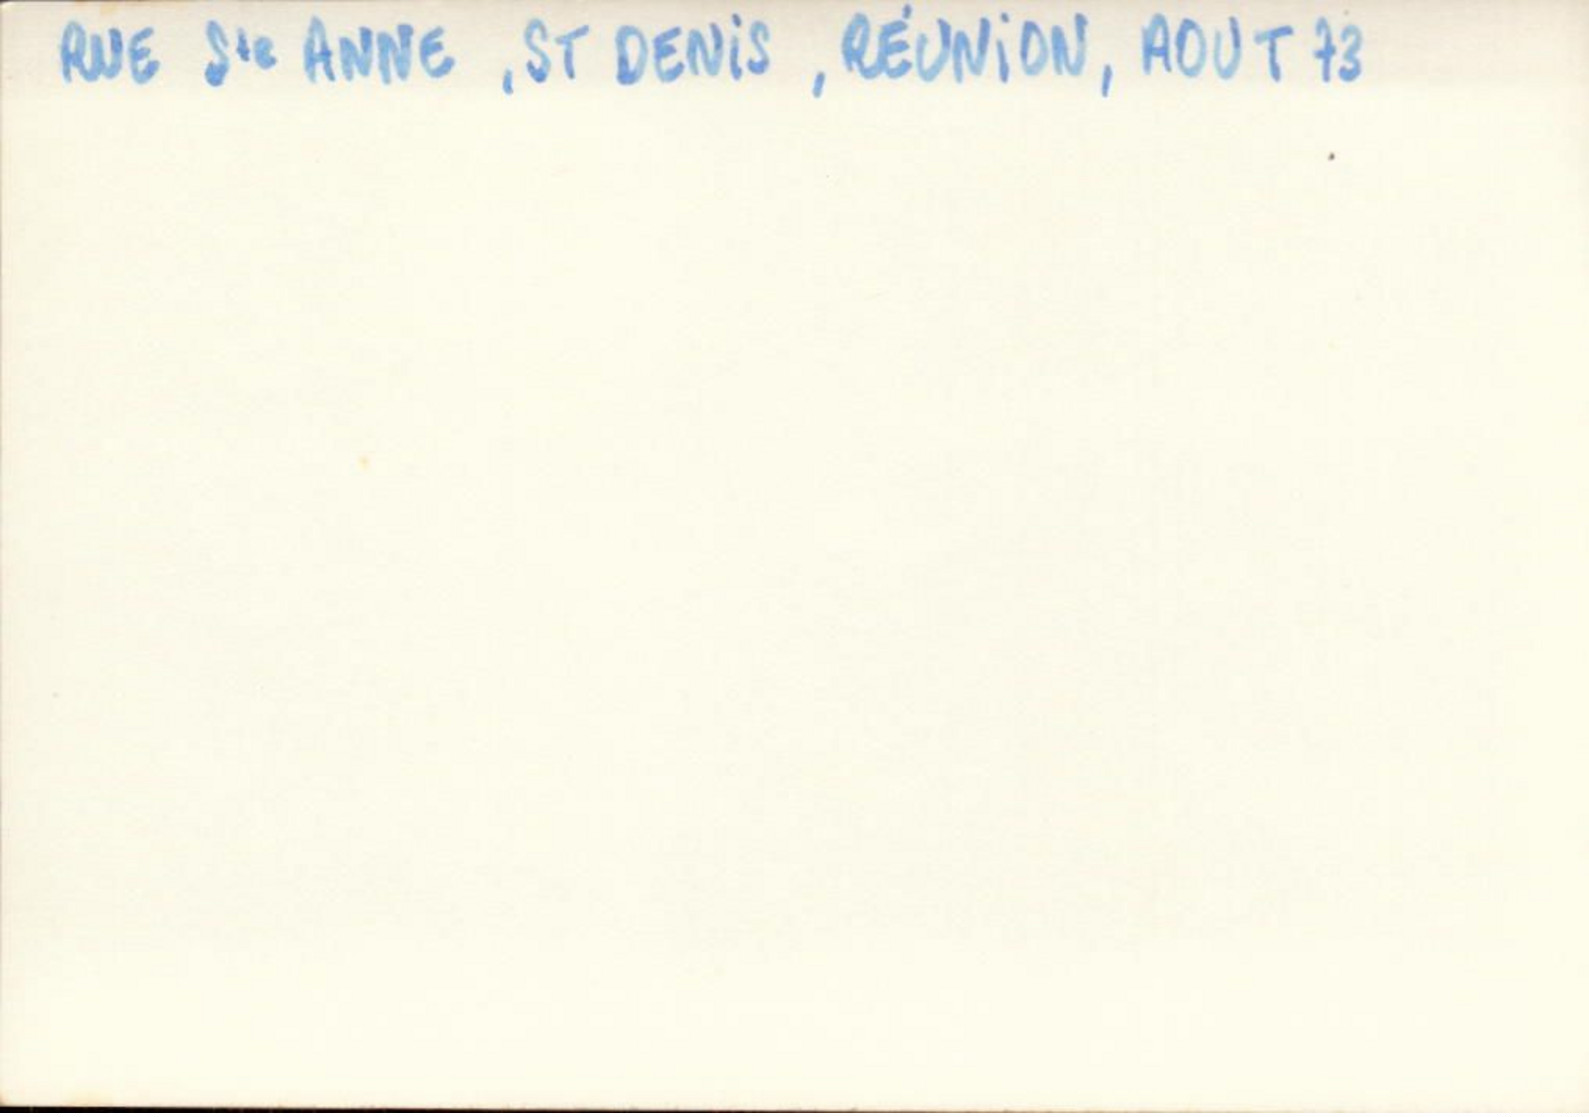 RUE Ste ANNE , ST DENiS , RÉUNiON, AOUT 73